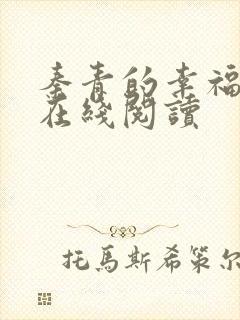 秦青的幸福
在綫閱讀
托馬斯希策尔